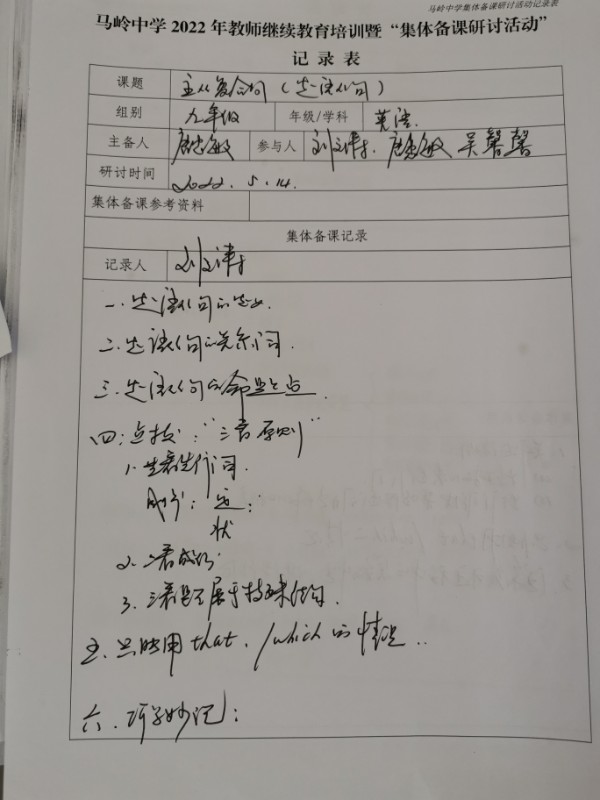 马岭中学集体备课研讨活动记录表
马岭中学 2022 年教师继续教育培训暨“集体备课研讨活动”
记 录 表
课题 主从复合句（定语从句）
组别 九年级 年级/学科 英语
主备人 参与人 吴馨馨
研讨时间 2022.5.14.
集体备课参考资料
集体备课记录
记录人
一.定语从句的定义
二.定语从句的关系词.
三.定语从句的命题考点.
四:点拨:“三看原则”
1.一看先行词.
成分: 定:
状
2.二看成分
3.三看是否属于特殊结构.
五.只能用 that./which 的情况..
六.巧学妙记: